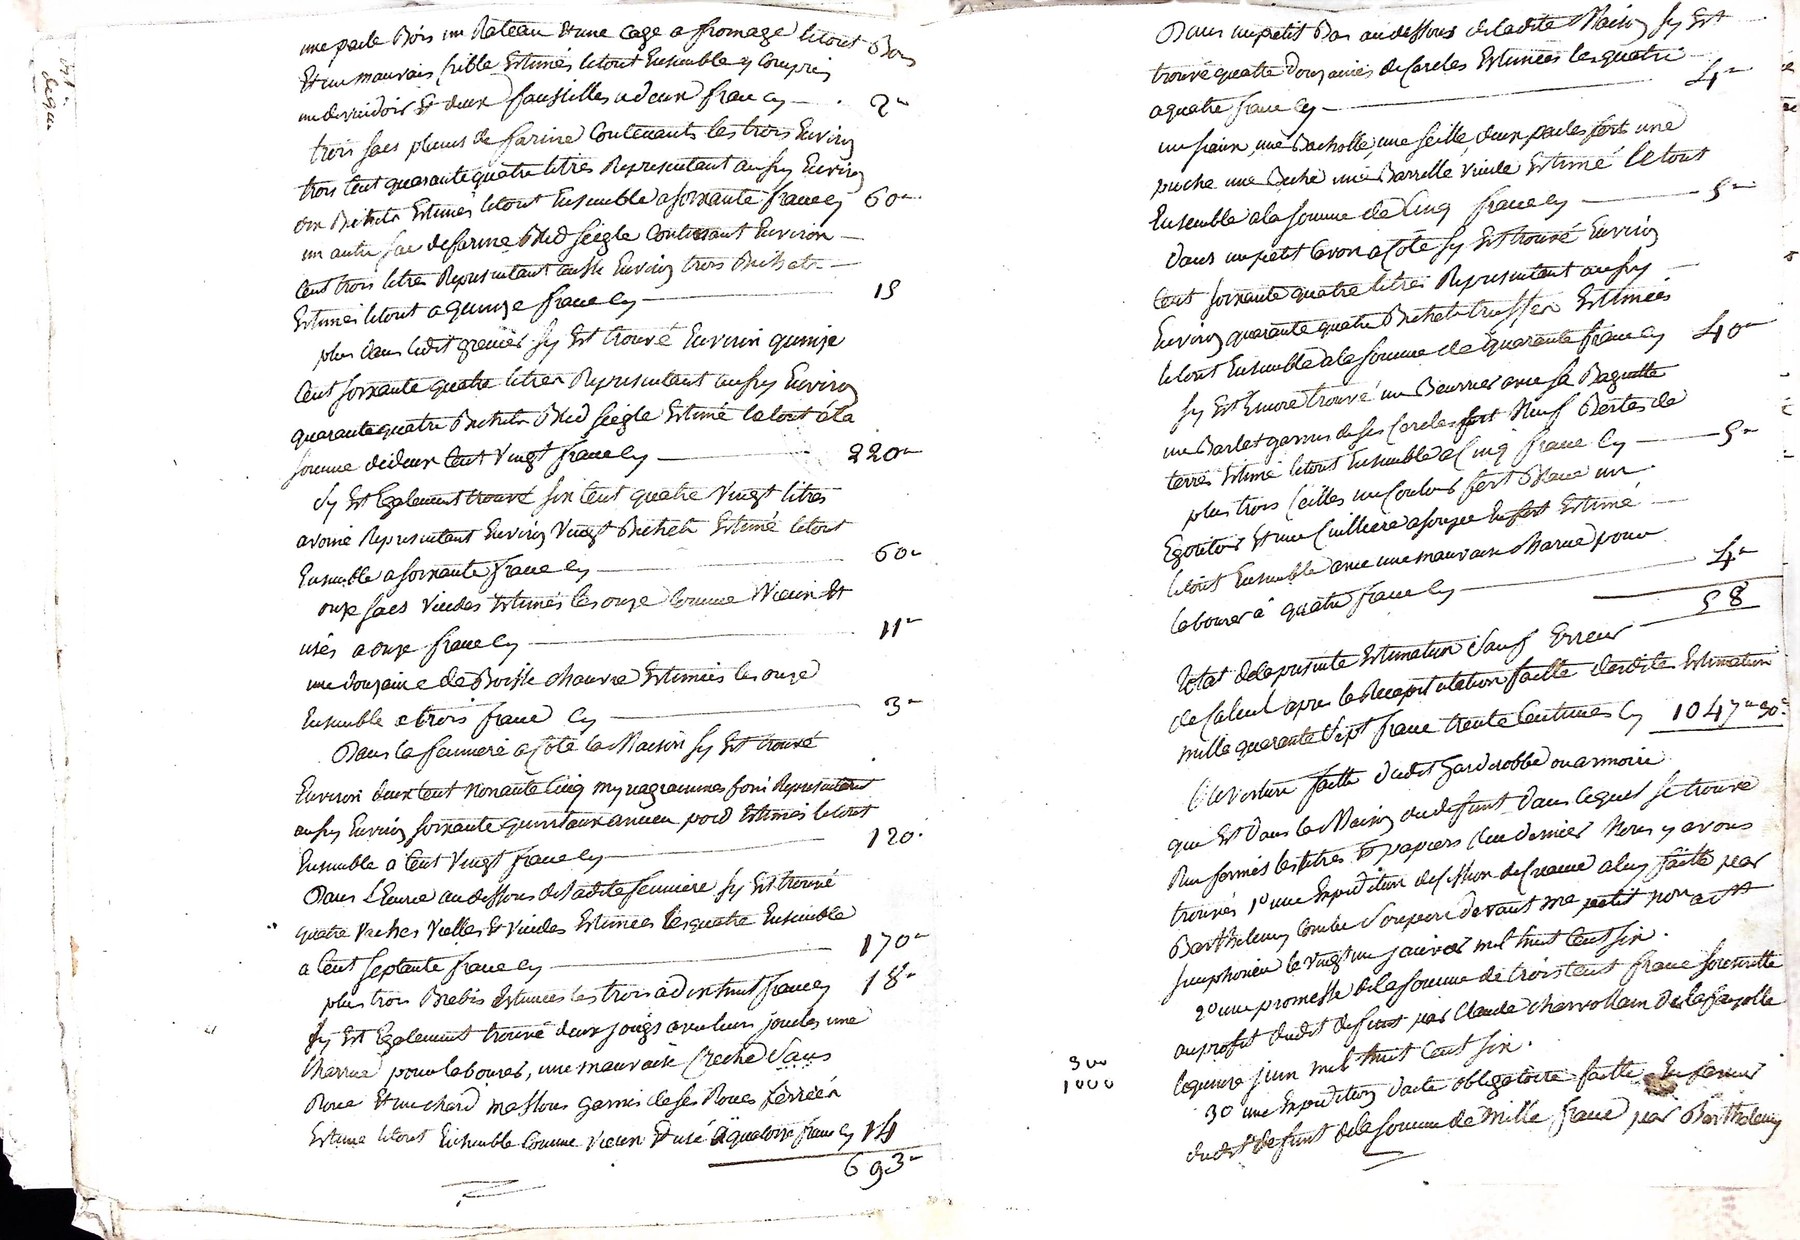 une paele Bois un Rateau & une cage a fromage letout Bois
Et un mauvais Crible Estimés letout Ensemble y Compris
un devidoir Et deux faussilles a deux franc Cy — 2"
trois sacs pleins de farine Contenants les trois Environ
trois Cent quarante quatre litres Representant aussy Environ
Bichets Estimés letout Ensemble a soixante franc Cy 60"
un autre sac de farine Bled seigle Contenant Environ
Cent trois litres Representant aussi Environ trois Bichets
Estimés letout a quinze franc Cy — 15
plus dans ledit grenier sy Est trouvé Environ quinze
Cent soixante quatre litres Representant aussy Environ
quarante quatre Bichets Bled seigle Estimé letout a la
somme de deux Cent Vingt franc Cy — 220"
sy Est Egalement trouvé six Cent quatre Vingt litres
avoine Representant Environ Vingt Bichets Estimé letout
Ensemble a soixante franc Cy — 60"
onze sacs Vuides Estimés les onze Comme Vieux Et
usés a onze franc Cy — 11"
une douzaine de Boisse chanvre Estimées les onze
Ensemble a trois franc Cy — 3"
Dans la fenniere a Coté la Maison sy Est trouvé
Environ deux Cent Nonante Cinq myriagrammes foin Representant
aussy Environ soixante quintaux ancien poid Estimés letout
Ensemble a Cent Vingt franc Cy — 120
Dans L'Ecurie au dessous de ladite fenniere sy Est trouvé
quatre Vaches Vielles Et Vuides Estimées les quatre Ensemble
a Cent septante franc Cy — 170"
plus trois Brebis Estimées les trois a dix huit franc Cy 18"
sy Est Egalement trouvé deux jougs avec leurs joucles une
Charrue pour labourer, une mauvaise Creche sans
Roue Et un chard garnis de ses Roues ferréés
Estimé letout Ensemble Comme vieux Et usé a quatorze franc Cy 14
693"
Dans un petit Bas au dessous de ladite Maison sy Est
trouvé quatre douzaines de Cercles Estimées les quatre
a quatre franc Cy — 4"
une Bacholle, une seille, deux paeles fert une
puche une Beche une Barrelle Vuide Estimé letout
Ensemble a la somme de Cinq franc Cy — 5"
Dans un petit Cavon a Coté sy Est trouvé Environ
Cent soixante quatre litres Representant aussy
Environ quarante quatre Bichets truffes Estimées
letout Ensemble a la somme de quarante franc Cy 40"
sy Est Encore trouvé un Beurrier avec sa Baguette
un Barlet garnis de ses Cercles fert Neuf Bertes de
terres Estimé letout Ensemble a Cinq franc Cy — 5"
plus trois seilles un Couloir fert Blanc un
Egoutoir Et une Cuilliere a soupe En fert Estimé
letout Ensemble avec une mauvaise charue pour
labourer a quatre franc Cy — 4"
58
Total de la presente Estimation Sauf Erreur
de Calcul apres la Recapitulation faitte desdites Estimation
Mille quarante Sept franc trente Centimes Cy 1047" 30c
Ouverture faitte dudit garderobbe ou armoire
que Est dans la Maison du defunt dans lequel se trouve
Renfermés les titres Et papiers Ce dernier Nous y avons
trouvés 1o une Expedition de Cession de Creance a luy faitte par
Barthelemy Combe devant me petit Notre a St
Simphorien le Vingt un janvier mil huit Cent six.
2o une promesse de la somme de trois Cent franc souscritte
au profit dudit defunt par Claude Charvollain de la fayolle
le quinze juin mil huit Cent six.
300
1000
3o une Expedition d'acte obligatoire faitte En faveur
dudit defunt de la somme de Mille franc par Barthelemy